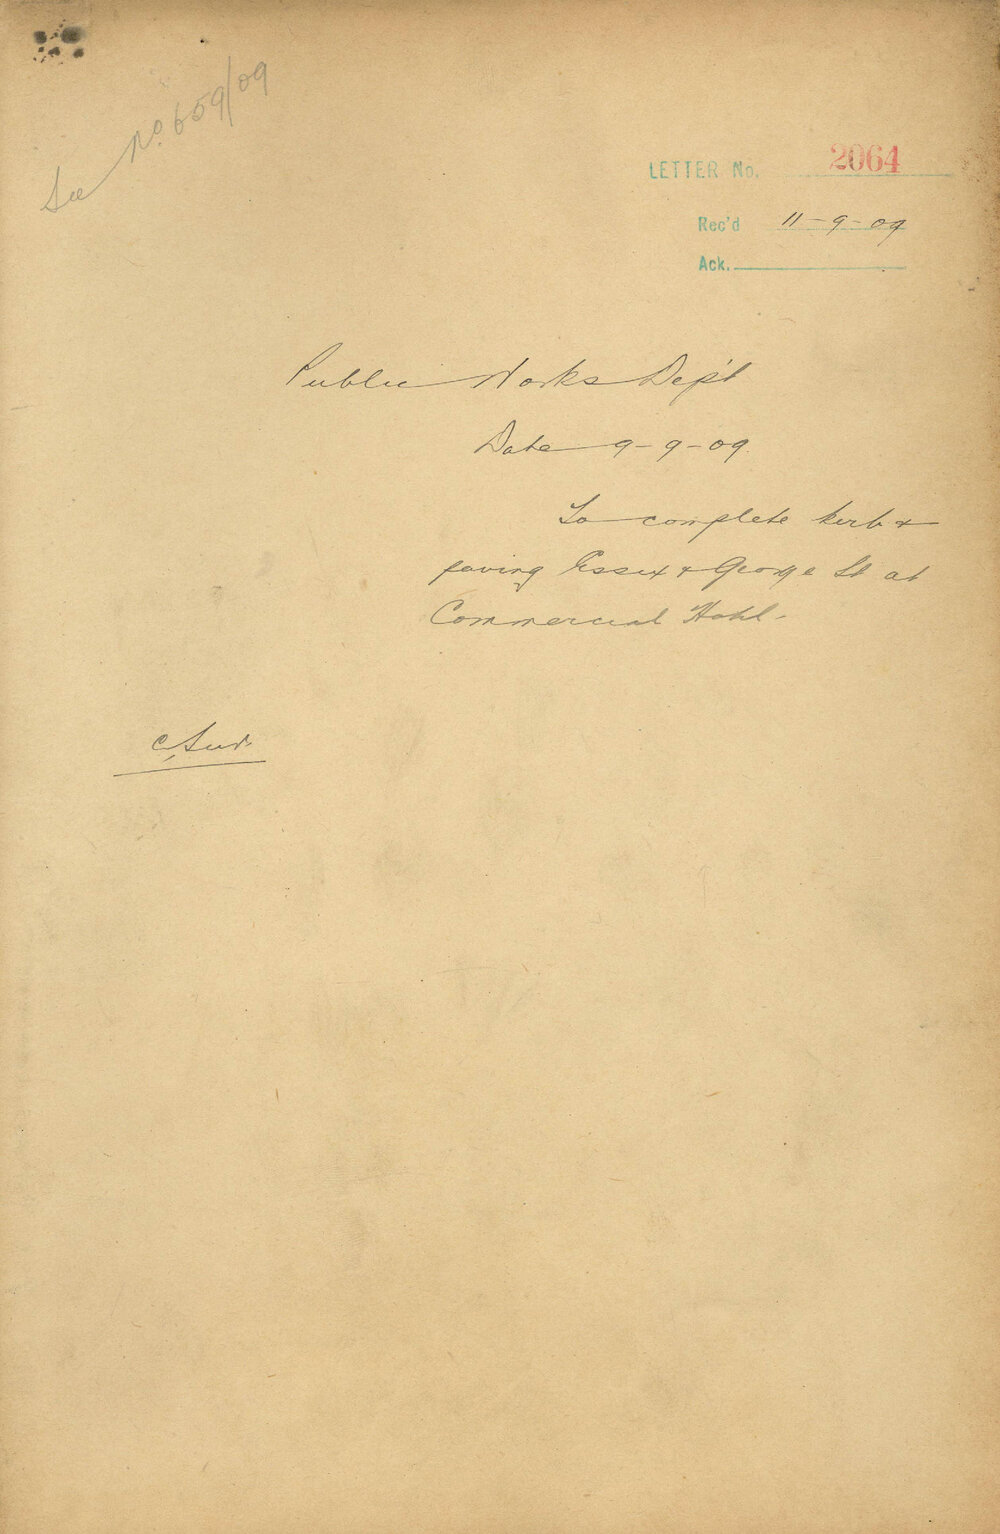 See No. 659/09
LETTER No. 2064
Rec'd 11-9-09
Ack.
Public Works Dep't
Date 9-9-09
To complete kerb &
paving Essex & George St at
Commercial Hotel.
C. Sur.